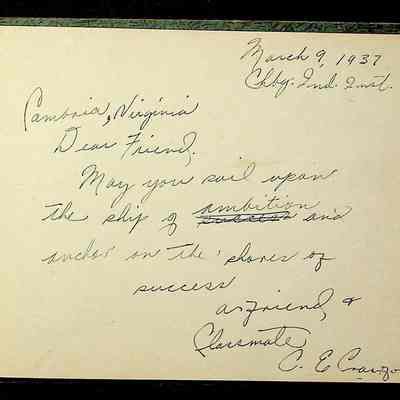 March 9, 1937
Chbg. Ind. Inst.
Cambria, Virginia
Dear Friend,
May you sail upon
the ship of ambition and
anchor on the shores of
success
a friend, &
Classmate
C. E.